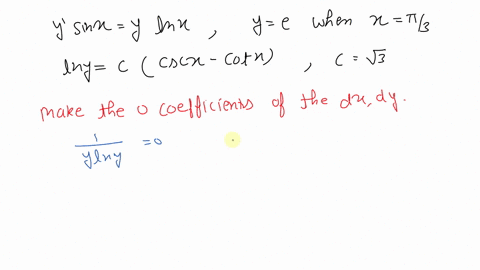 y' sinx = y lnx , y = e when x = π/3
lny = c (cscx - cotx) , c = √3
make the 0 coefficients of the dx, dy.
1/(y lny) = 0